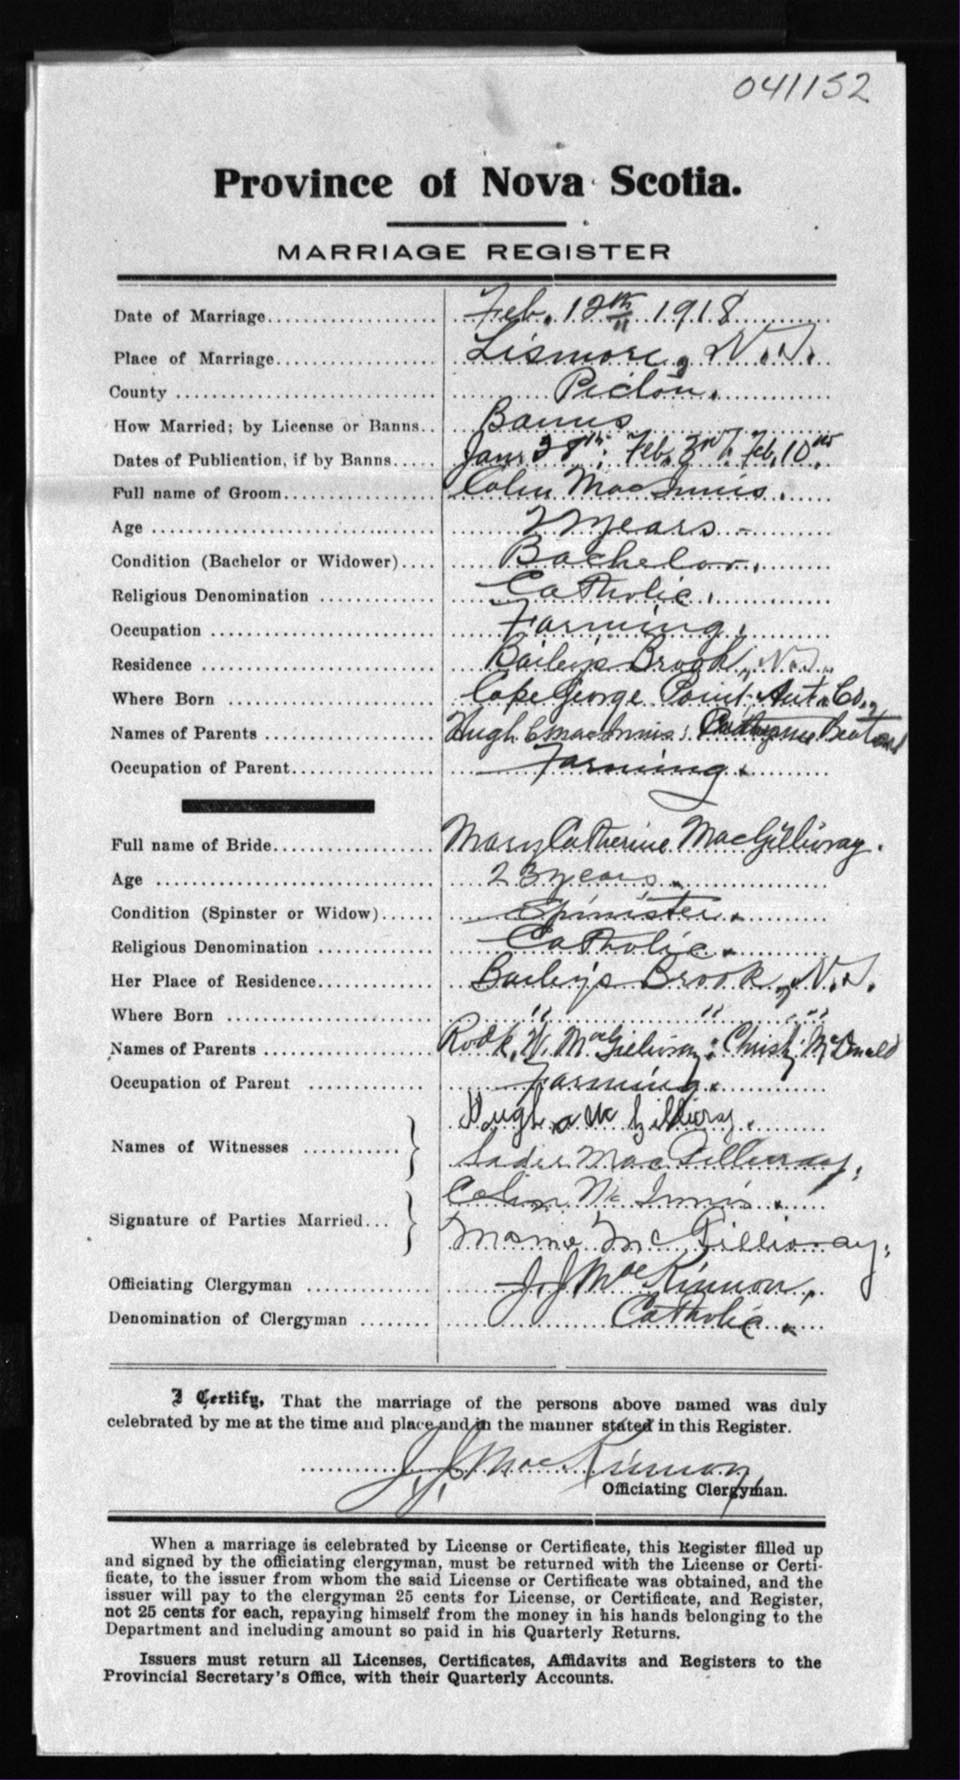 041152
Province of Nova Scotia.
MARRIAGE REGISTER
Date of Marriage.................... Feb. 12th 1918
Place of Marriage................... Lismore, N.S.
County .............................. Pictou.
How Married; by License or Banns.. Banns
Dates of Publication, if by Banns..... Jan. 28th: Feb. 3rd: Feb. 10th
Full name of Groom................... Colin MacInnis.
Age .............................. years.
Condition (Bachelor or Widower).... Bachelor.
Religious Denomination ............ Catholic.
Occupation ........................ Farming.
Residence ......................... Bailey's Brook, N.S.
Where Born ........................ Cape George Point, Ant. Co.,
Names of Parents .................. Hugh C MacInnis: Beaton
Occupation of Parent............... Farming.
Full name of Bride................. Mary Catherine MacGillivray.
Age ............................... 23 years.
Condition (Spinster or Widow)...... Spinister.
Religious Denomination ............ Catholic.
Her Place of Residence............. Bailey's Brook, N.S.
Where Born ........................ " " "
Names of Parents .................. Rodk. W. MacGillivray: Christy McDonald
Occupation of Parent .............. Farming.
Names of Witnesses ............ Hugh a Mc Gillivray.
Sadie MacGillivray.
Signature of Parties Married... Colin McInnis.
Mamie McGillivray.
Officiating Clergyman ............. J. J. MacKinnon,
Denomination of Clergyman ........ Catholic.
I Certify, That the marriage of the persons above named was duly
celebrated by me at the time and place and in the manner stated in this Register.
J. J. MacKinnon
Officiating Clergyman.
When a marriage is celebrated by License or Certificate, this Register filled up
and signed by the officiating clergyman, must be returned with the License or Certi-
ficate, to the issuer from whom the said License or Certificate was obtained, and the
issuer will pay to the clergyman 25 cents for License, or Certificate, and Register,
not 25 cents for each, repaying himself from the money in his hands belonging to the
Department and including amount so paid in his Quarterly Returns.
Issuers must return all Licenses, Certificates, Affidavits and Registers to the
Provincial Secretary's Office, with their Quarterly Accounts.